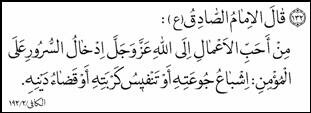 (١٣٢) قَالَ الإِمَامُ الصَّادِقُ (ع) :
مِنْ أَحَبِّ الأَعْمَالِ إِلَى اللهِ عَزَّ وَجَلَّ إِدْخَالُ السُّرُورِ عَلَى
الْمُؤْمِنِ: إِشْبَاعُ جُوعَتِهِ أَوْ تَنْفِيسُ كُرْبَتِهِ أَوْ قَضَاءُ دَيْنِهِ.
الكافي/٢/١٩٢